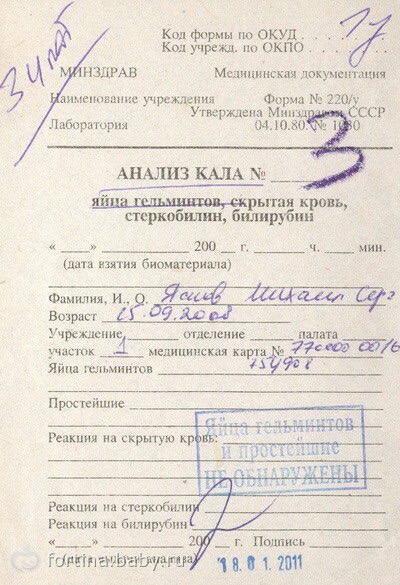 Код формы по ОКУД
Код учрежд. по ОКПО
МИНЗДРАВ Медицинская документация
Наименование учреждения Форма № 220/у
Утверждена Минздравом СССР
Лаборатория 04.10.80. № 1030
АНАЛИЗ КАЛА № 3
яйца гельминтов, скрытая кровь,
стеркобилин, билирубин
«___»________ 200__ г. ___ ч. ___ мин.
(дата взятия биоматериала)
Фамилия, И., О. Михаил Сер
Возраст 15.09.2008
Учреждение отделение палата
участок 1 медицинская карта № 770000 00/6
Яйца гельминтов 754908
Простейшие
Яйца гельминтов
и простейшие
НЕ ОБНАРУЖЕНЫ
Реакция на скрытую кровь:
Реакция на стеркобилин
Реакция на билирубин
«___»________ 200__ г. Подпись
(дата выдачи анализа)
18.01.2011